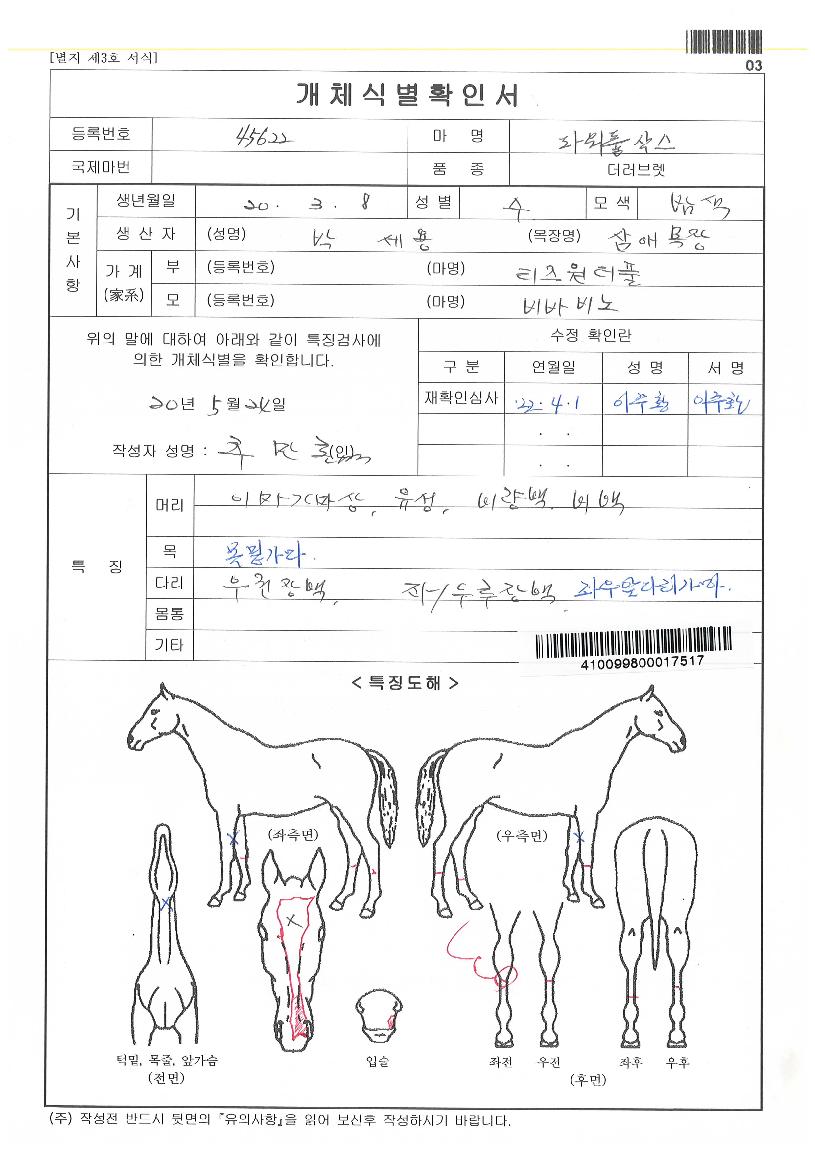 [별지 제3호 서식]
03
개체식별확인서
등록번호 45622 마 명 라뫼톨삭스
국제마번 품 종 더러브렛
기본사항
생년월일 20. 3. 8 성 별 수 모 색 밤색
생 산 자 (성명) 박 세 용 (목장명) 삼애목장
가 계 (家系) 부 (등록번호) (마명) 티즈원더풀
모 (등록번호) (마명) 비바비노
위의 말에 대하여 아래와 같이 특징검사에
의한 개체식별을 확인합니다.
20년 5월 24일
작성자 성명 : (인)
수정 확인란
구 분 연월일 성 명 서 명
재확인심사 '22. 4. 1
. .
. .
특 징
머리 이마가마상, 유성, 비량백. 비백
목 목밑가마.
다리 우전장백, 좌/우후장백 좌우앞다리가마.
몸통
기타
410099800017517
< 특징도해 >
(좌측면) (우측면)
턱밑, 목줄, 앞가슴 입술 좌전 우전 좌후 우후
(전면) (후면)
(주) 작성전 반드시 뒷면의 『유의사항』을 읽어 보신후 작성하시기 바랍니다.